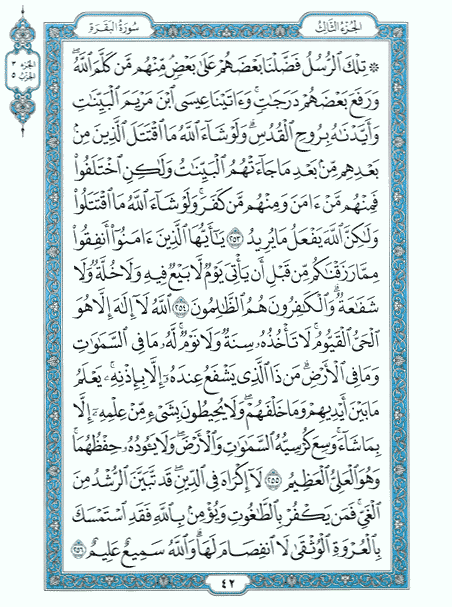 الجزء الثالث
سورة البقرة
الجزء ٣
الحزب ٥
۞ تِلْكَ ٱلرُّسُلُ فَضَّلْنَا بَعْضَهُمْ عَلَىٰ بَعْضٍ مِّنْهُم مَّن كَلَّمَ ٱللَّهُ ۖ
وَرَفَعَ بَعْضَهُمْ دَرَجَٰتٍ ۚ وَءَاتَيْنَا عِيسَى ٱبْنَ مَرْيَمَ ٱلْبَيِّنَٰتِ
وَأَيَّدْنَٰهُ بِرُوحِ ٱلْقُدُسِ ۗ وَلَوْ شَآءَ ٱللَّهُ مَا ٱقْتَتَلَ ٱلَّذِينَ مِنۢ
بَعْدِهِم مِّنۢ بَعْدِ مَا جَآءَتْهُمُ ٱلْبَيِّنَٰتُ وَلَٰكِنِ ٱخْتَلَفُوا۟
فَمِنْهُم مَّنْ ءَامَنَ وَمِنْهُم مَّن كَفَرَ ۚ وَلَوْ شَآءَ ٱللَّهُ مَا ٱقْتَتَلُوا۟
وَلَٰكِنَّ ٱللَّهَ يَفْعَلُ مَا يُرِيدُ ٢٥٣ يَٰٓأَيُّهَا ٱلَّذِينَ ءَامَنُوٓا۟ أَنفِقُوا۟
مِمَّا رَزَقْنَٰكُم مِّن قَبْلِ أَن يَأْتِىَ يَوْمٌ لَّا بَيْعٌ فِيهِ وَلَا خُلَّةٌ وَلَا
شَفَٰعَةٌ ۗ وَٱلْكَٰفِرُونَ هُمُ ٱلظَّٰلِمُونَ ٢٥٤ ٱللَّهُ لَآ إِلَٰهَ إِلَّا هُوَ
ٱلْحَىُّ ٱلْقَيُّومُ ۚ لَا تَأْخُذُهُۥ سِنَةٌ وَلَا نَوْمٌ ۚ لَّهُۥ مَا فِى ٱلسَّمَٰوَٰتِ
وَمَا فِى ٱلْأَرْضِ ۗ مَن ذَا ٱلَّذِى يَشْفَعُ عِندَهُۥٓ إِلَّا بِإِذْنِهِۦ ۚ يَعْلَمُ
مَا بَيْنَ أَيْدِيهِمْ وَمَا خَلْفَهُمْ ۖ وَلَا يُحِيطُونَ بِشَىْءٍ مِّنْ عِلْمِهِۦٓ إِلَّا
بِمَا شَآءَ ۚ وَسِعَ كُرْسِيُّهُ ٱلسَّمَٰوَٰتِ وَٱلْأَرْضَ ۖ وَلَا يَـُٔودُهُۥ حِفْظُهُمَا ۚ
وَهُوَ ٱلْعَلِىُّ ٱلْعَظِيمُ ٢٥٥ لَآ إِكْرَاهَ فِى ٱلدِّينِ ۖ قَد تَّبَيَّنَ ٱلرُّشْدُ مِنَ
ٱلْغَىِّ ۚ فَمَن يَكْفُرْ بِٱلطَّٰغُوتِ وَيُؤْمِنۢ بِٱللَّهِ فَقَدِ ٱسْتَمْسَكَ
بِٱلْعُرْوَةِ ٱلْوُثْقَىٰ لَا ٱنفِصَامَ لَهَا ۗ وَٱللَّهُ سَمِيعٌ عَلِيمٌ ٢٥٦
٤٢